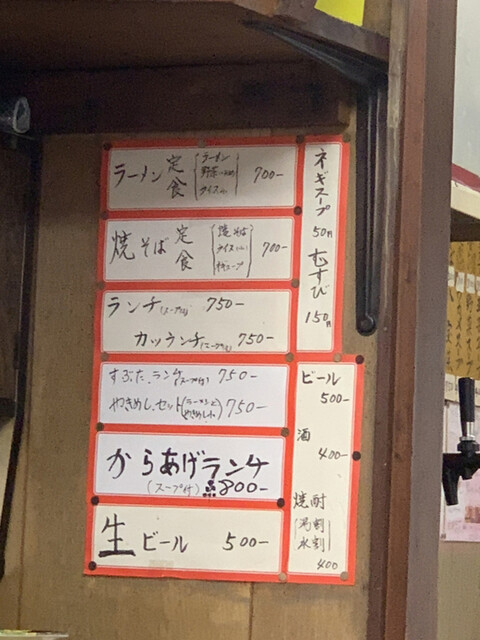 ラーメン定食
ラーメン
野菜いため
ライス
700-
焼そば定食
焼そば
ライス
ネギスープ
700-
ランチ(スープ付) 750-
カツランチ(スープ付) 750-
すぶた、ランチ(スープ付) 750-
やきめし、セット(ラーメンとやきめし) 750-
からあげランチ
(スープ付) 800-
生ビール 500-
ネギスープ
50円
むすび
150円
ビール
500-
酒
400-
焼酎
湯割
水割
400